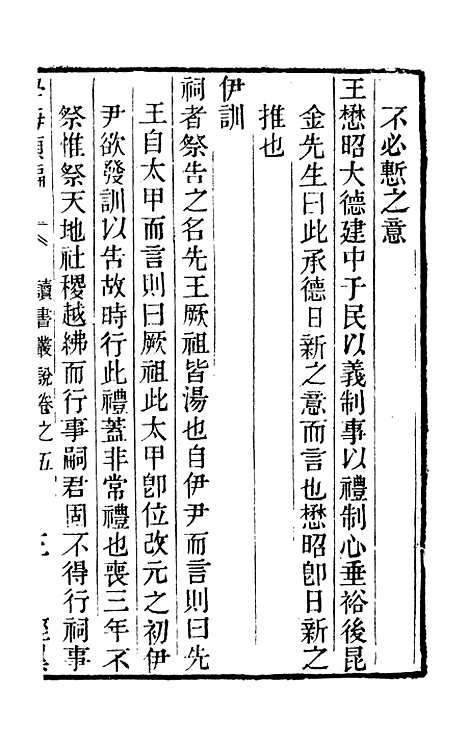 不必慙之意
王懋昭大德建中于民以義制事以禮制心垂裕後昆
金先生曰此承德日新之意而言也懋昭卽日新之
推也
伊訓
祠者祭告之名先王厥祖皆湯也自伊尹而言則曰先
王自太甲而言則曰厥祖此太甲卽位改元之初伊
尹欲發訓以告故時行此禮蓋非常禮也喪三年不
祭惟祭天地社稷越紼而行事嗣君固不得行祠事
讀書叢說卷之五